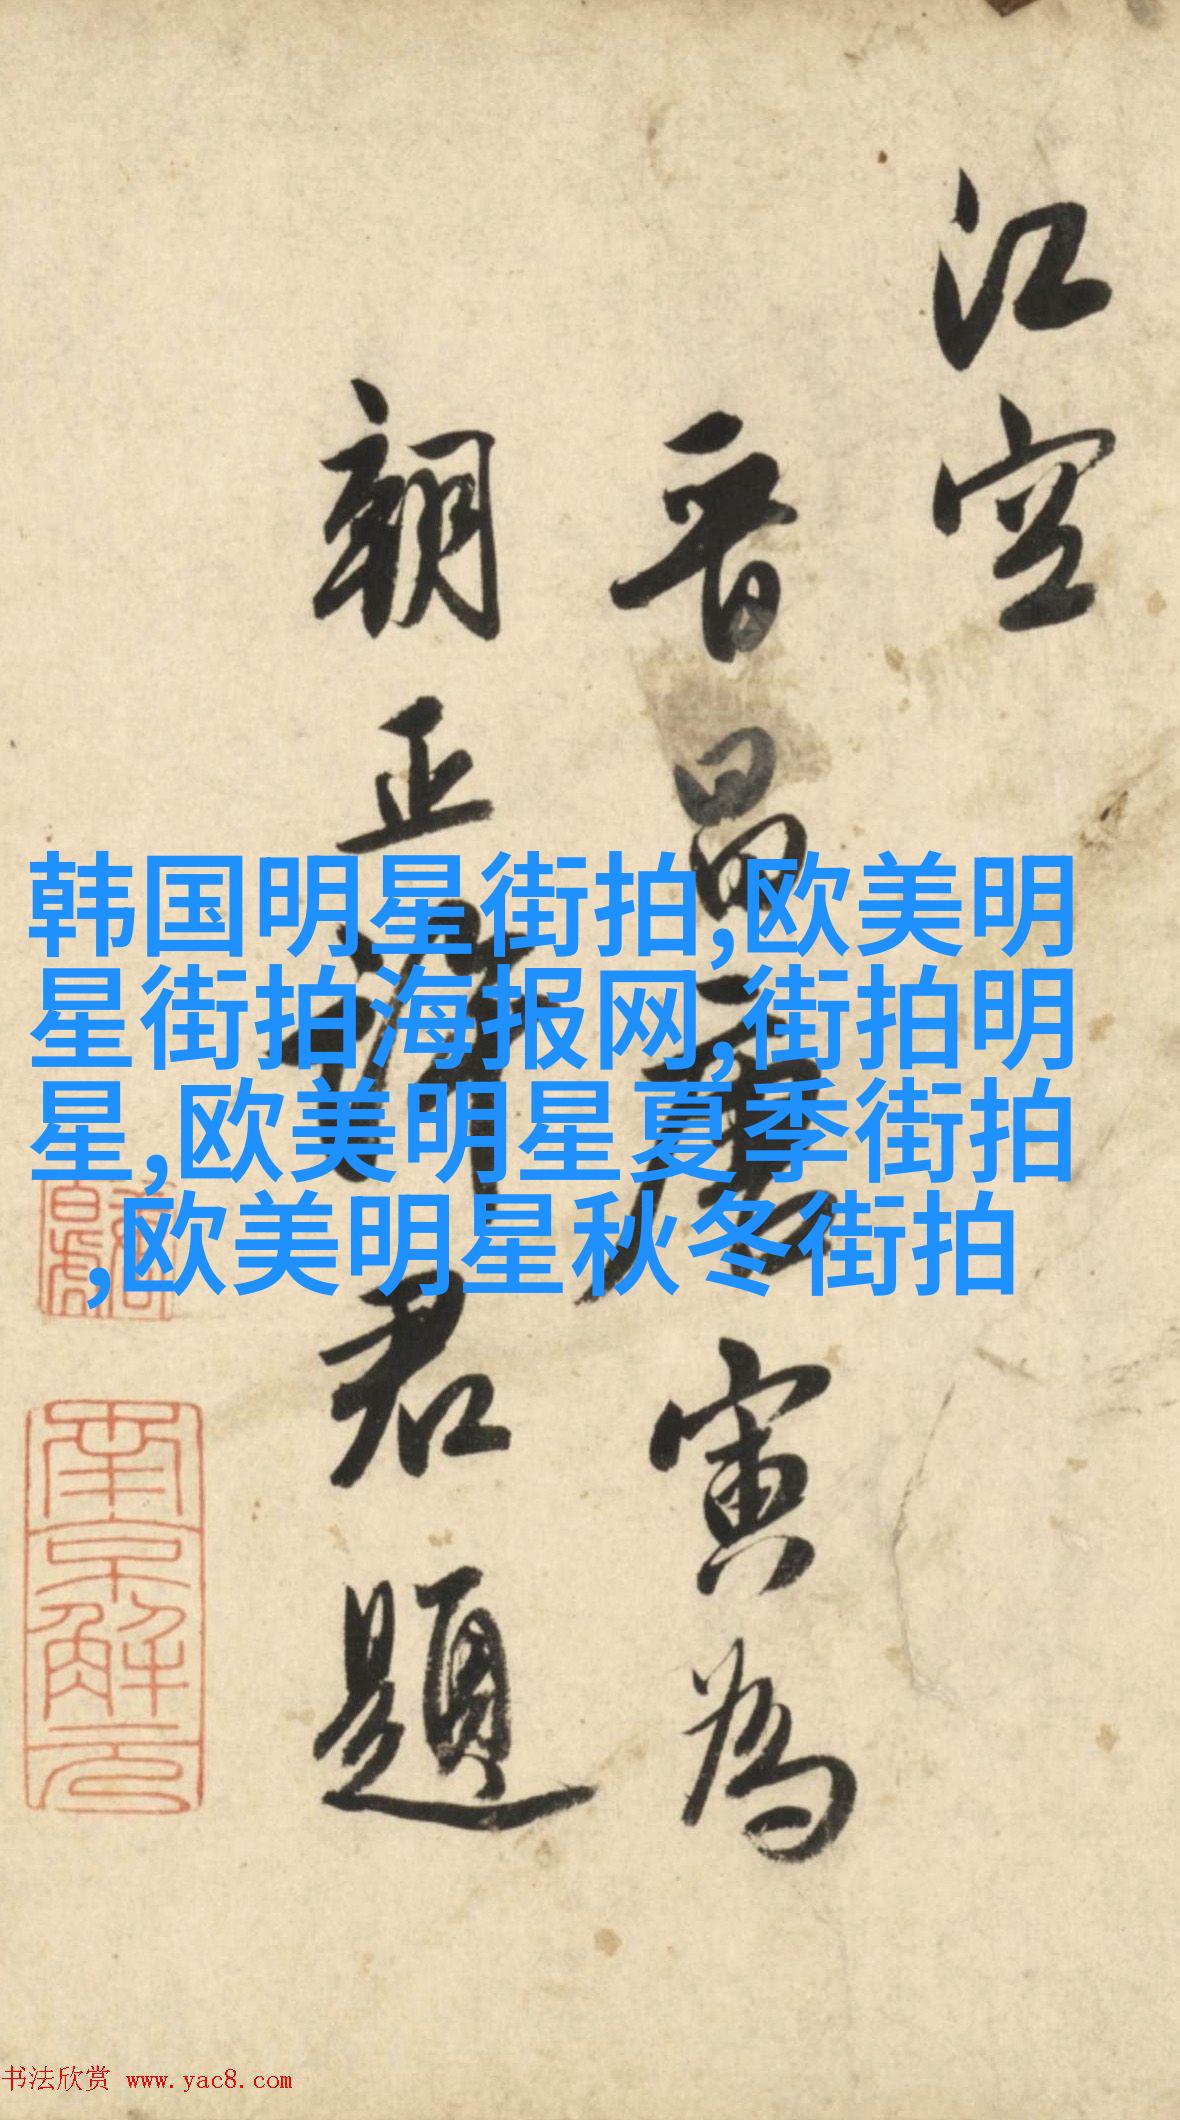 江空
晋昌唐寅為
朝正君題
南京解元
韩国明星街拍,欧美明
星街拍海报网,街拍明
星,欧美明星夏季街拍
,欧美明星秋冬街拍
书法欣赏 www.yac8.com